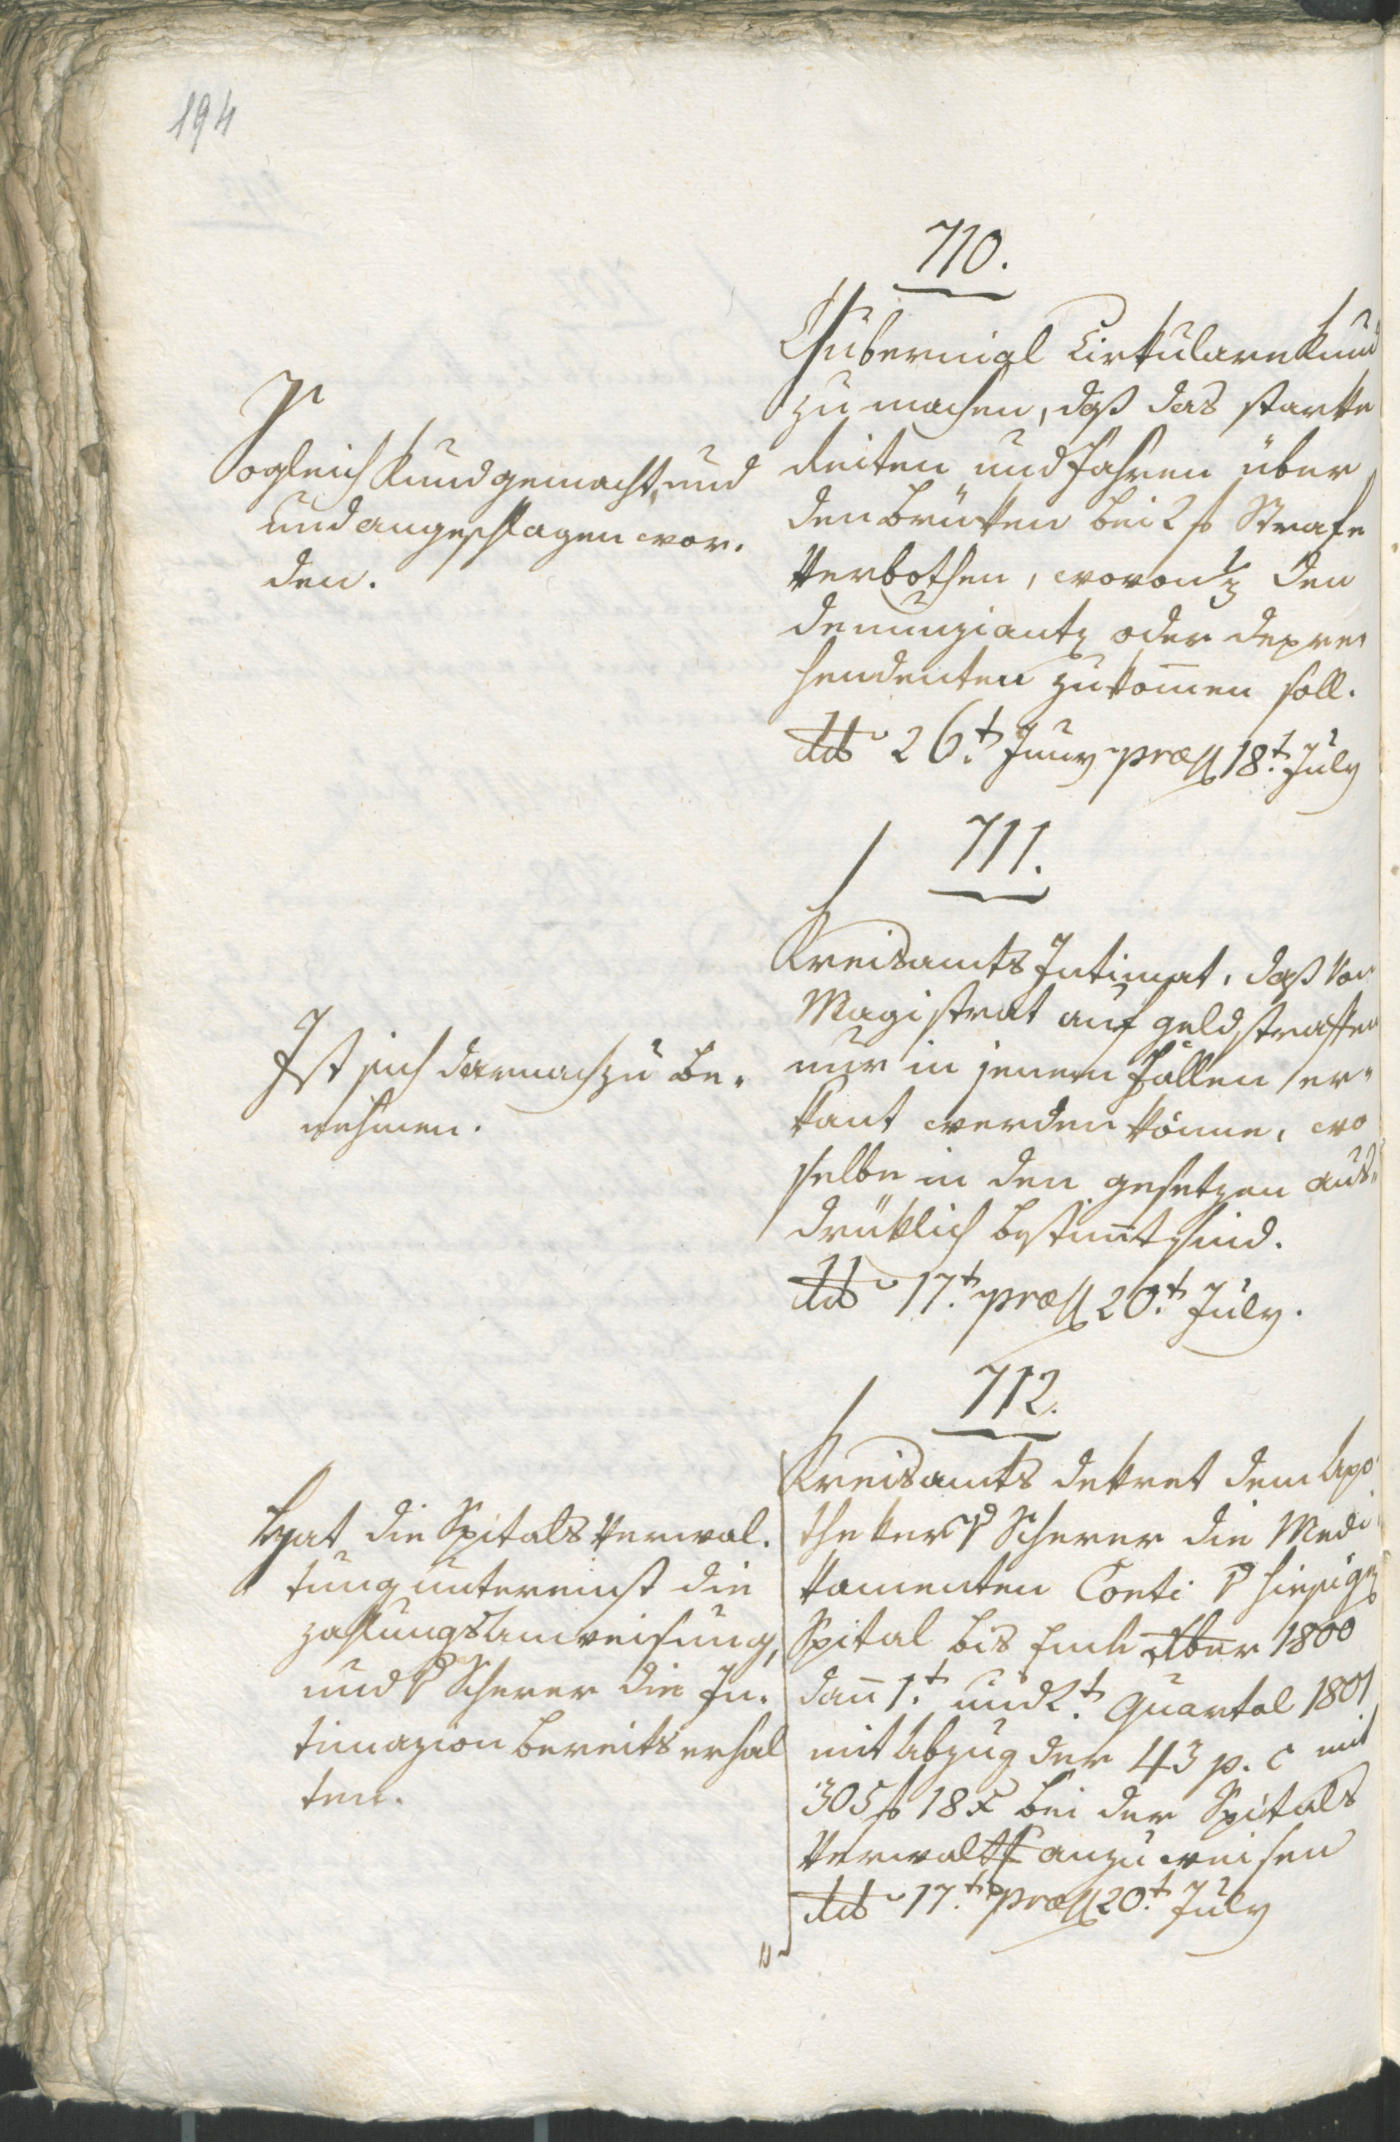 194
710.
Gubernial Cirkulare kund
zu machen, daß das starke
Reiten und Fahren über
den Brükken bei 2 f Strafe
Verbothen, wovon 1/3 den
Denunzianten oder depre-
hendenten zukom̄en soll.
dto 26.t Juny præs 18.t July
Sogleich kundgemacht, und
und angeschlagen wor-
den.
711.
Kreisamts Intimat, daß Von
Magistrat auf geldstraffen
nur in jenem Fällen er-
kant werden könne, wo
selbe in den gesetzen aus-
drüklich bestim̄t sind.
dto 17.t præs 20.t July.
Ist sich darnach zu be-
nehmen.
712.
Kreisamts dekret dem Apo-
theker Scherer die Medi-
kamenten Conti hiesiges
Spital bis Ende 8ber 1800
dan̄ 1.t und 2.t Quartal 1801
mit Abzug der 43 p. C mit
305 f 18 x bei der Spitals
Verwaltg anzuweisen
dto 17.t præs 20.t July
Hat die Spitals Verwal-
tung untereinst die
zahlungs Anweisung,
und Scherer die In-
timazion bereits erhal
ten.